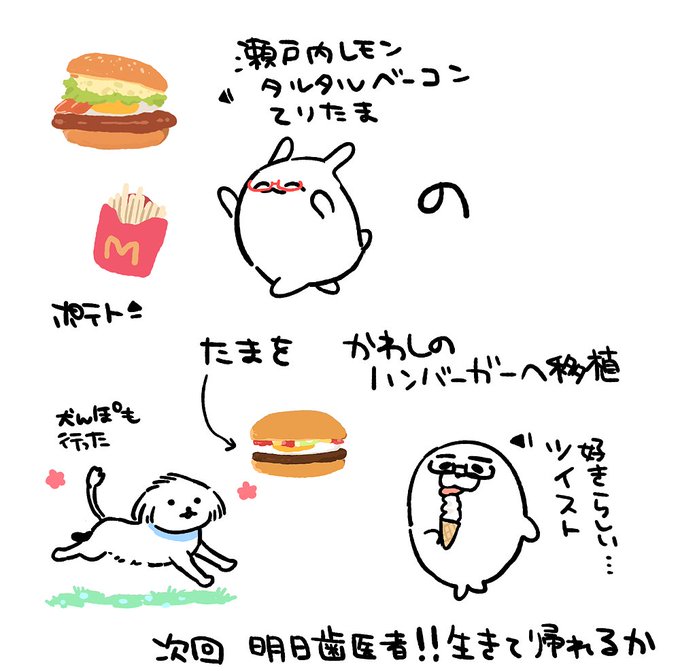 瀬戸内レモン
タルタルベーコン
てりたま
の
M
ポテト
たまを
かわしの
ハンバーガーへ移植
犬んぽも
行った
好きらしい…
ツイスト
次回 明日歯医者!!生きて帰れるか